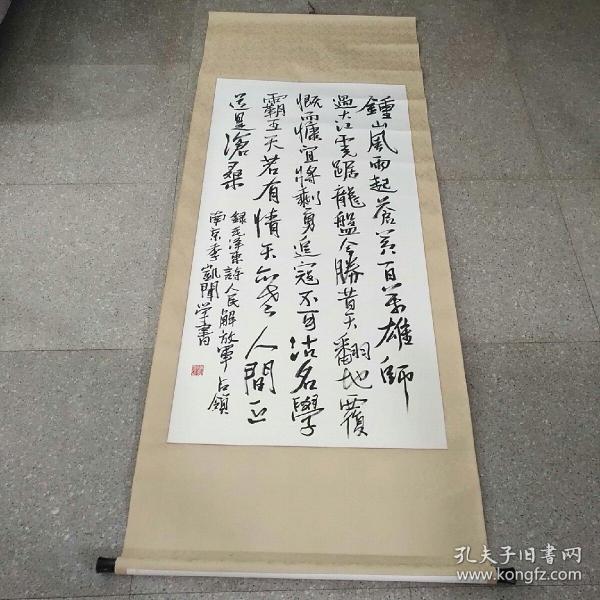 鍾山風雨起蒼黄百萬雄師
過大江虎踞龍盤今勝昔天翻地覆
慨而慷宜將剩勇追寇不可沽名學
霸王天若有情天亦老人間正
道是滄桑
録毛澤東詩人民解放軍占領
南京李凱聞学書
孔夫子旧书网
www.kongfz.com